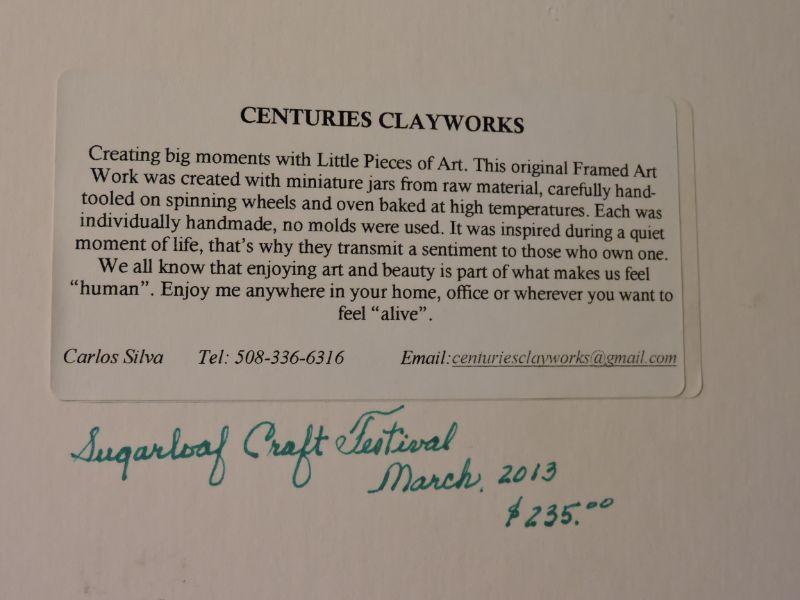 CENTURIES CLAYWORKS
Creating big moments with Little Pieces of Art. This original Framed Art
Work was created with miniature jars from raw material, carefully hand-
tooled on spinning wheels and oven baked at high temperatures. Each was
individually handmade, no molds were used. It was inspired during a quiet
moment of life, that's why they transmit a sentiment to those who own one.
We all know that enjoying art and beauty is part of what makes us feel
"human". Enjoy me anywhere in your home, office or wherever you want to
feel "alive".
Carlos Silva Tel: 508-336-6316 Email:centuriesclayworks@gmail.com
Sugarloaf Craft Festival
March, 2013
$235.00